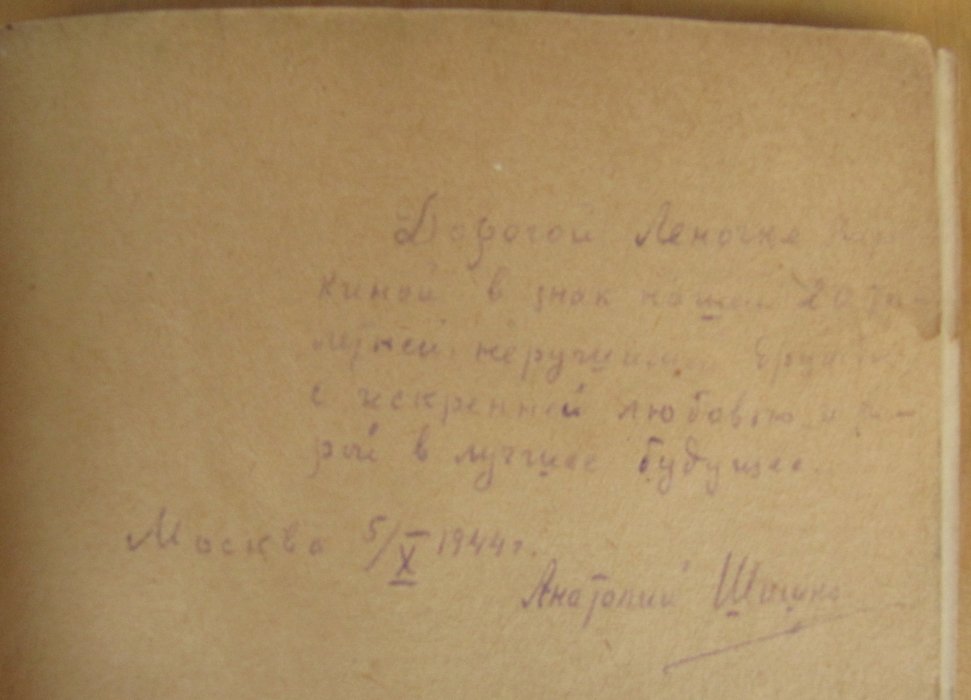 Дорогой Леночке
киной в знак нашей 20ти
летней нерушимой
с искренней любовью и ве-
рой в лучшее будущее.
Москва 5/X 1944г.
Анатолий Шишко